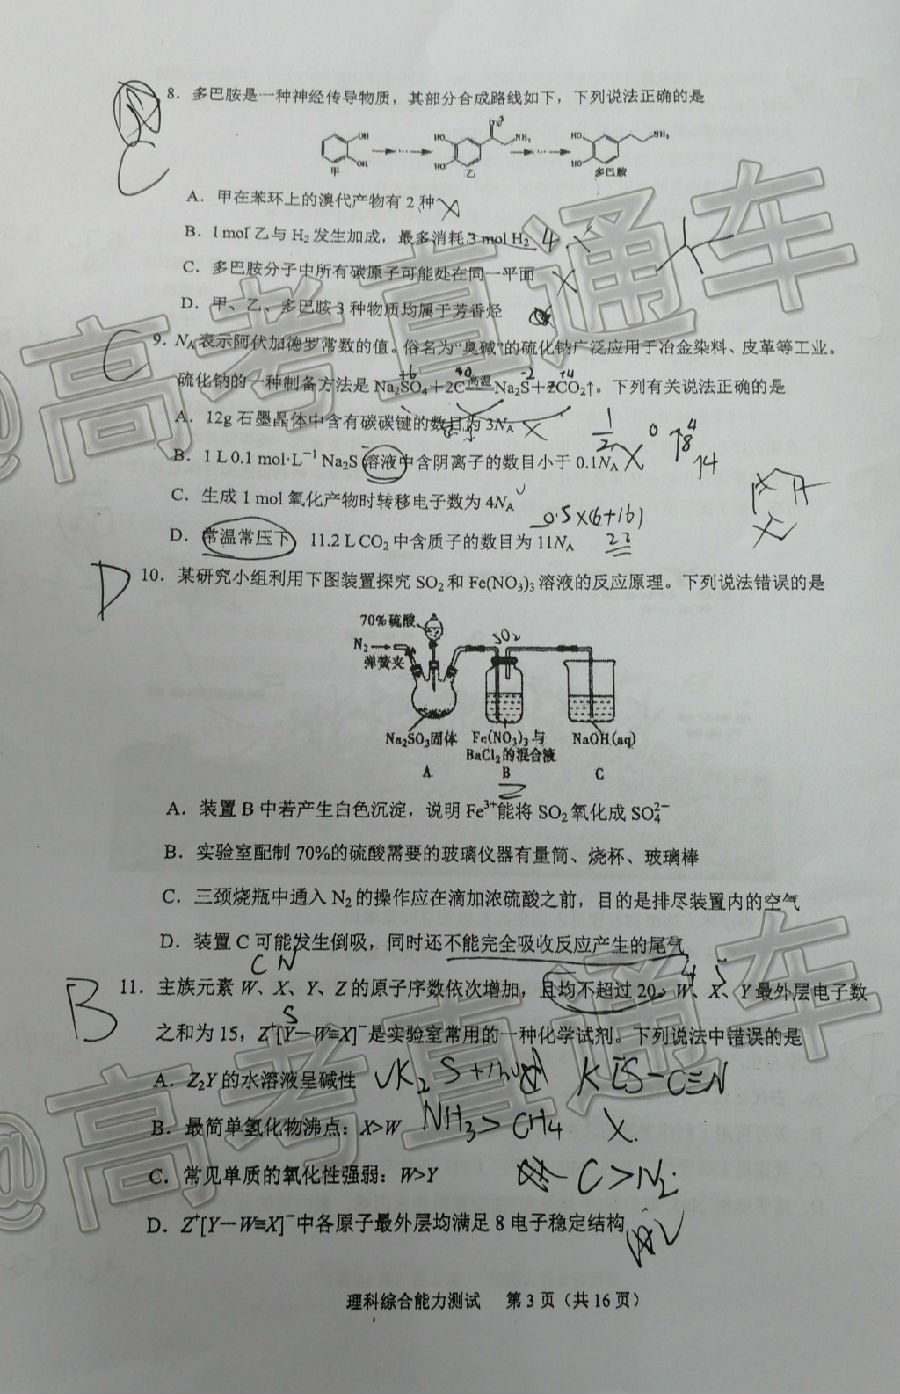 8．多巴胺是一种神经传导物质，其部分合成路线如下，下列说法正确的是
C
甲
乙
多巴胺
A．甲在苯环上的溴代产物有 2 种
B．1mol 乙与 H₂ 发生加成，最多消耗 3 mol H₂ 4
C．多巴胺分子中所有碳原子可能处在同一平面
D．甲、乙、多巴胺 3 种物质均属于芳香烃
C
9．N_A 表示阿伏加德罗常数的值。俗名为“臭碱”的硫化钠广泛应用于冶金染料、皮革等工业。
硫化钠的一种制备方法是 Na₂SO₄+2C 高温 Na₂S+2CO₂↑。下列有关说法正确的是
A．12g 石墨晶体中含有碳碳键的数目为 3N_A
B．1 L 0.1 mol·L⁻¹ Na₂S 溶液中含阴离子的数目小于 0.1N_A
C．生成 1 mol 氧化产物时转移电子数为 4N_A
0.5×(6+16)
D．常温常压下，11.2 L CO₂ 中含质子的数目为 11N_A 22
D
10．某研究小组利用下图装置探究 SO₂ 和 Fe(NO₃)₃ 溶液的反应原理。下列说法错误的是
70%硫酸
N₂
SO₂
弹簧夹
Na₂SO₃固体
Fe(NO₃)₃与
BaCl₂的混合液
NaOH(aq)
A B C
A．装置 B 中若产生白色沉淀，说明 Fe³⁺能将 SO₂ 氧化成 SO₄²⁻
B．实验室配制 70%的硫酸需要的玻璃仪器有量筒、烧杯、玻璃棒
C．三颈烧瓶中通入 N₂ 的操作应在滴加浓硫酸之前，目的是排尽装置内的空气
D．装置 C 可能发生倒吸，同时还不能完全吸收反应产生的尾气
C N 4 5
B
11．主族元素 W、X、Y、Z 的原子序数依次增加，且均不超过 20。W、X、Y 最外层电子数
S
之和为 15，Z⁺[Y—W≡X]⁻是实验室常用的一种化学试剂。下列说法中错误的是
A．Z₂Y 的水溶液呈碱性 K₂S K[S-C≡N
B．最简单氢化物沸点：X>W NH₃>CH₄
C．常见单质的氧化性强弱：W>Y C>N₂
D．Z⁺[Y—W≡X]⁻中各原子最外层均满足 8 电子稳定结构
理科综合能力测试 第 3 页（共 16 页）
@高考直通车
@高考直通车